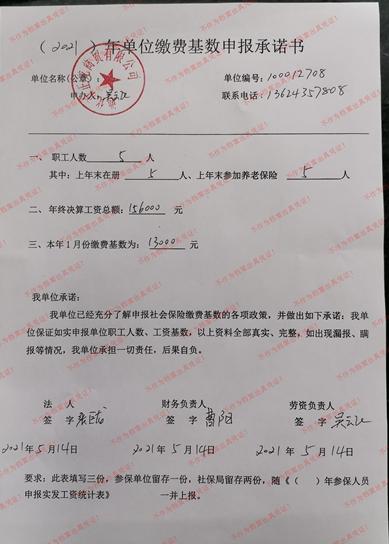 （2021）年单位缴费基数申报承诺书
单位名称（公章） 单位编号：100012708
申办人： 联系电话：13624357808
一、 职工人数 5 人
其中：上年末在册 5 人、上年末参加养老保险 5 人
二、年终决算工资总额：156000 元
三、本年1月份缴费基数为：13000 元
我单位承诺：
我单位已经充分了解申报社会保险缴费基数的各项政策，并做出如下承诺：我单
位保证如实申报单位职工人数、工资基数，以上资料全部真实、完整，如出现漏报、瞒
报等情况，我单位承担一切责任，后果自负。
法 人 财务负责人 劳资负责人
签 字 签 字 签 字
2021年5月14日 2021年5月14日 2021年5月14日
要求：此表填写三份，参保单位留存一份，社保局留存两份，随《（ ）年参保人员
申报实发工资统计表》 一并上报。
不作为档案出具凭证！